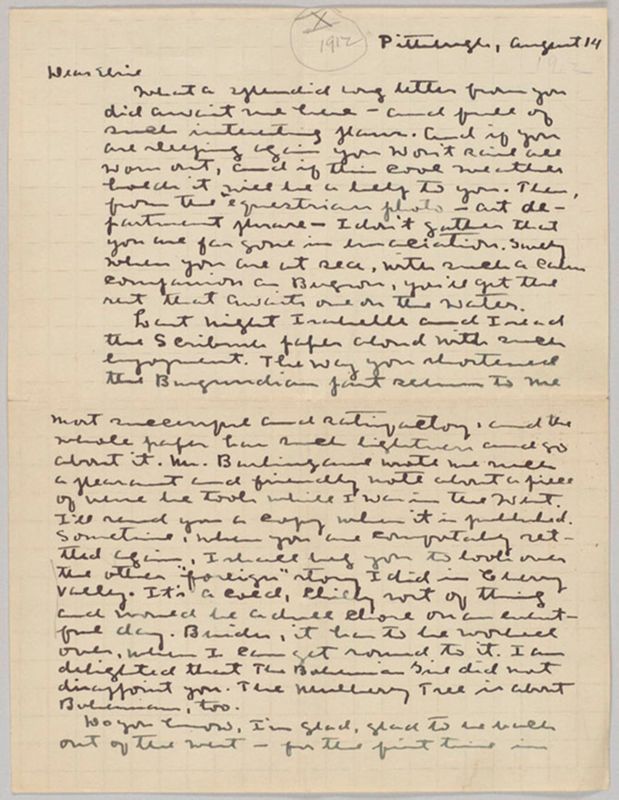 X
1912
Pittsburgh, August 14
1912
Dear Elsie
What a splendid long letter from you
did await me here - and full of
such interesting plans. And if you
are sleeping again you won't sail all
worn out, and if this cool weather
holds it will be a help to you. Then,
from the "equestrian photo - art de-
partment phrase - I don't gather that
you are far gone in emaciation. Surely
when you are at sea, with such a calm
companion as you'll get the
rest that awaits one on the water.
Last night Isabelle and I read
the Scribner paper aloud with such
enjoyment. The way you shortened
the Burgundian part seems to me
most successful and satisfactory, and the
whole paper has such lightness and go
about it. Mr. Burlingame wrote me such
a pleasant and friendly note about a piece
of verse he took while I was in the West.
I'll send you a copy when it is published.
Sometime, when you are comfortably set-
tled again, I shall beg you to look over
the other "foreign" story I did in Cherry
Valley. It's a cold, chilly sort of thing
and would be a dull chore on an event-
ful day. Besides, it has to be worked
over, when I can get round to it. I am
delighted that The Bohemian Girl did not
disappoint you. The Mulberry Tree is about
Bohemians, too.
Do you know, I'm glad, glad to be back
out of the west - for the first time in